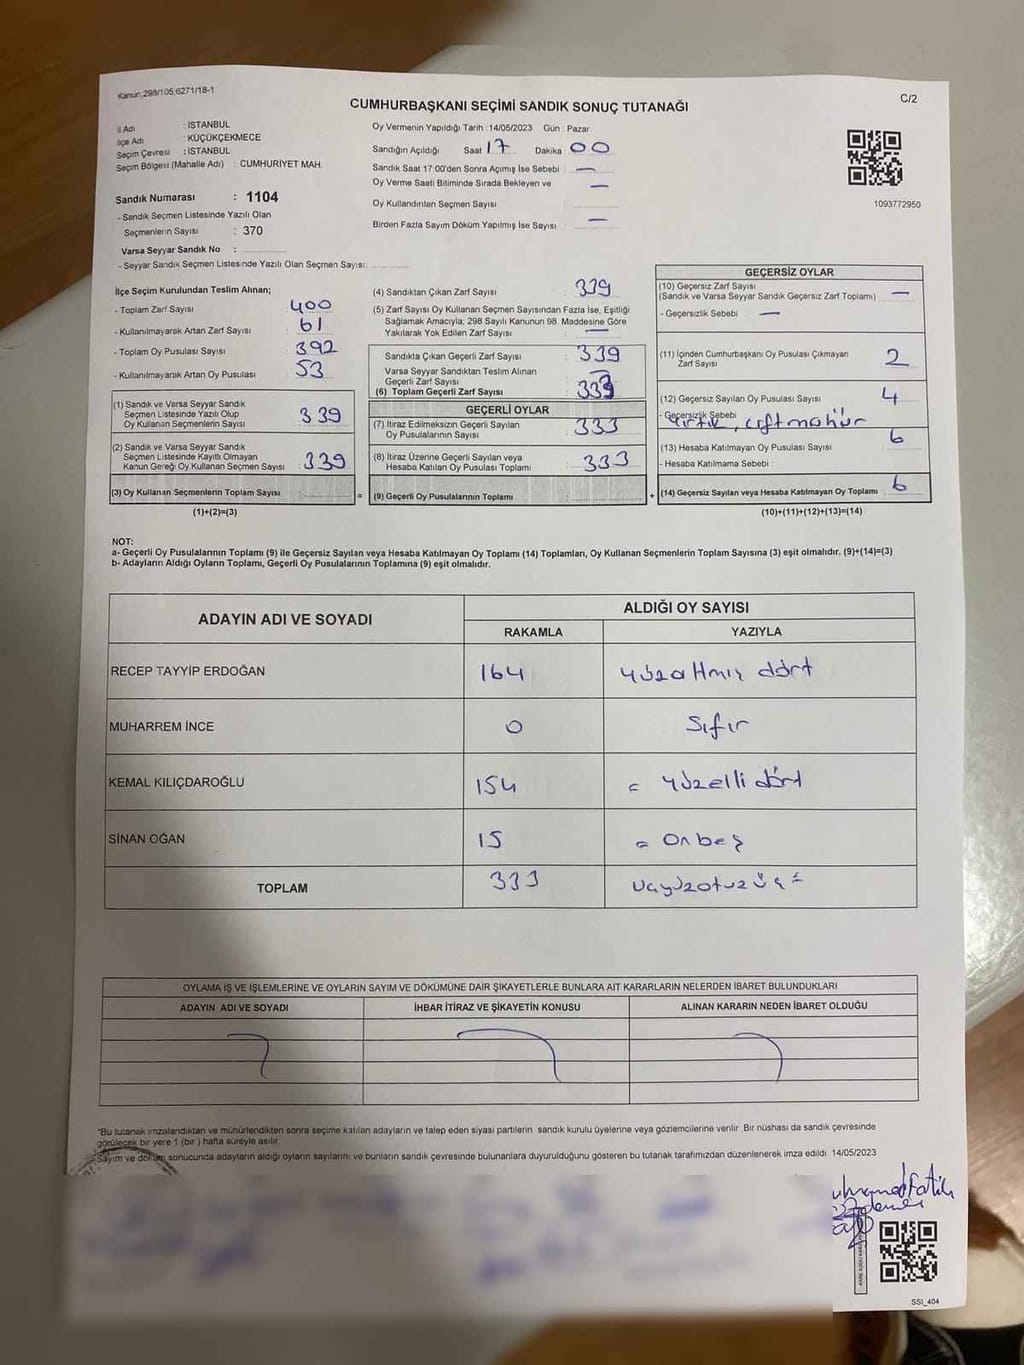 Kanun; 298/105,6271/18-1
CUMHURBAŞKANI SEÇİMİ SANDIK SONUÇ TUTANAĞI
C/2
İl Adı : İSTANBUL
İlçe Adı : KÜÇÜKÇEKMECE
Seçim Çevresi : İSTANBUL
Seçim Bölgesi (Mahalle Adı) : CUMHURİYET MAH.
Sandık Numarası : 1104
- Sandık Seçmen Listesinde Yazılı Olan
Seçmenlerin Sayısı : 370
Varsa Seyyar Sandık No :
- Seyyar Sandık Seçmen Listesinde Yazılı Olan Seçmen Sayısı:
Oy Vermenin Yapıldığı Tarih :14/05/2023 Gün : Pazar
Sandığın Açıldığı Saat 17 Dakika 00
Sandık Saat 17.00'den Sonra Açımış İse Sebebi : —
Oy Verme Saati Bitiminde Sırada Bekleyen ve —
Oy Kullandırılan Seçmen Sayısı
Birden Fazla Sayım Döküm Yapılmış İse Sayısı : —
1093772950
İlçe Seçim Kurulundan Teslim Alınan;
- Toplam Zarf Sayısı : 400
- Kullanılmayarak Artan Zarf Sayısı : 61
- Toplam Oy Pusulası Sayısı : 392
- Kullanılmayarak Artan Oy Pusulası : 53
(1) Sandık ve Varsa Seyyar Sandık
Seçmen Listesinde Yazılı Olup
Oy Kullanan Seçmenlerin Sayısı : 339
(2) Sandık ve Varsa Seyyar Sandık
Seçmen Listesinde Kayıtlı Olmayan
Kanun Gereği Oy Kullanan Seçmen Sayısı : 339
(3) Oy Kullanan Seçmenlerin Toplam Sayısı :
(1)+(2)=(3)
(4) Sandıktan Çıkan Zarf Sayısı : 339
(5) Zarf Sayısı Oy Kullanan Seçmen Sayısından Fazla İse, Eşitliği
Sağlamak Amacıyla, 298 Sayılı Kanunun 98. Maddesine Göre
Yakılarak Yok Edilen Zarf Sayısı : —
Sandıkta Çıkan Geçerli Zarf Sayısı : 339
Varsa Seyyar Sandıktan Teslim Alınan
Geçerli Zarf Sayısı
(6) Toplam Geçerli Zarf Sayısı : 339
GEÇERLİ OYLAR
(7) İtiraz Edilmeksizin Geçerli Sayılan
Oy Pusulalarının Sayısı : 333
(8) İtiraz Üzerine Geçerli Sayılan veya
Hesaba Katılan Oy Pusulası Toplamı : 333
= (9) Geçerli Oy Pusulalarının Toplamı :
GEÇERSİZ OYLAR
(10) Geçersiz Zarf Sayısı
(Sandık ve Varsa Seyyar Sandık Geçersiz Zarf Toplamı) : —
- Geçersizlik Sebebi : —
(11) İçinden Cumhurbaşkanı Oy Pusulası Çıkmayan
Zarf Sayısı : 2
(12) Geçersiz Sayılan Oy Pusulası Sayısı : 4
- Geçersizlik Sebebi
çift mühür
(13) Hesaba Katılmayan Oy Pusulası Sayısı : 6
- Hesaba Katılmama Sebebi :
+ (14) Geçersiz Sayılan veya Hesaba Katılmayan Oy Toplamı : 6
(10)+(11)+(12)+(13)=(14)
NOT:
a- Geçerli Oy Pusulalarının Toplamı (9) ile Geçersiz Sayılan veya Hesaba Katılmayan Oy Toplamı (14) Toplamları, Oy Kullanan Seçmenlerin Toplam Sayısına (3) eşit olmalıdır. (9)+(14)=(3)
b- Adayların Aldığı Oyların Toplamı, Geçerli Oy Pusulalarının Toplamına (9) eşit olmalıdır.
ADAYIN ADI VE SOYADI
ALDIĞI OY SAYISI
RAKAMLA YAZIYLA
RECEP TAYYİP ERDOĞAN 164 yüzaltmış dört
MUHARREM İNCE 0 Sıfır
KEMAL KILIÇDAROĞLU 154 = yüzelli dört
SİNAN OĞAN 15 = Onbeş
TOPLAM 333 üçyüzotuzüç =
OYLAMA İŞ VE İŞLEMLERİNE VE OYLARIN SAYIM VE DÖKÜMÜNE DAİR ŞİKAYETLERLE BUNLARA AİT KARARLARIN NELERDEN İBARET BULUNDUKLARI
ADAYIN ADI VE SOYADI İHBAR İTİRAZ VE ŞİKAYETİN KONUSU ALINAN KARARIN NEDEN İBARET OLDUĞU
*Bu tutanak imzalandıktan ve mühürlendikten sonra seçime katılan adayların ve talep eden siyasi partilerin sandık kurulu üyelerine veya gözlemcilerine verilir. Bir nüshası da sandık çevresinde
görülecek bir yere 1 (bir) hafta süreyle asılır.
Sayım ve döküm sonucunda adayların aldığı oyların sayılarını ve bunların sandık çevresinde bulunanlara duyurulduğunu gösteren bu tutanak tarafımızdan düzenlenerek imza edildi. 14/05/2023
Fatih
SSI_404